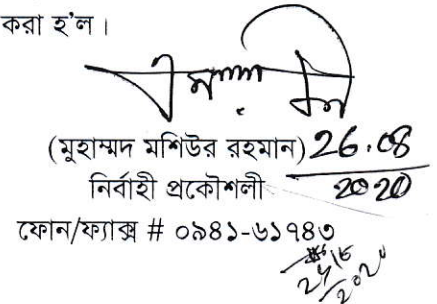 করা হ'ল।
(মুহাম্মদ মশিউর রহমান) 26.08
নির্বাহী প্রকৌশলী 2020
ফোন/ফ্যাক্স # ০৯৪১-৬১৭৪৩